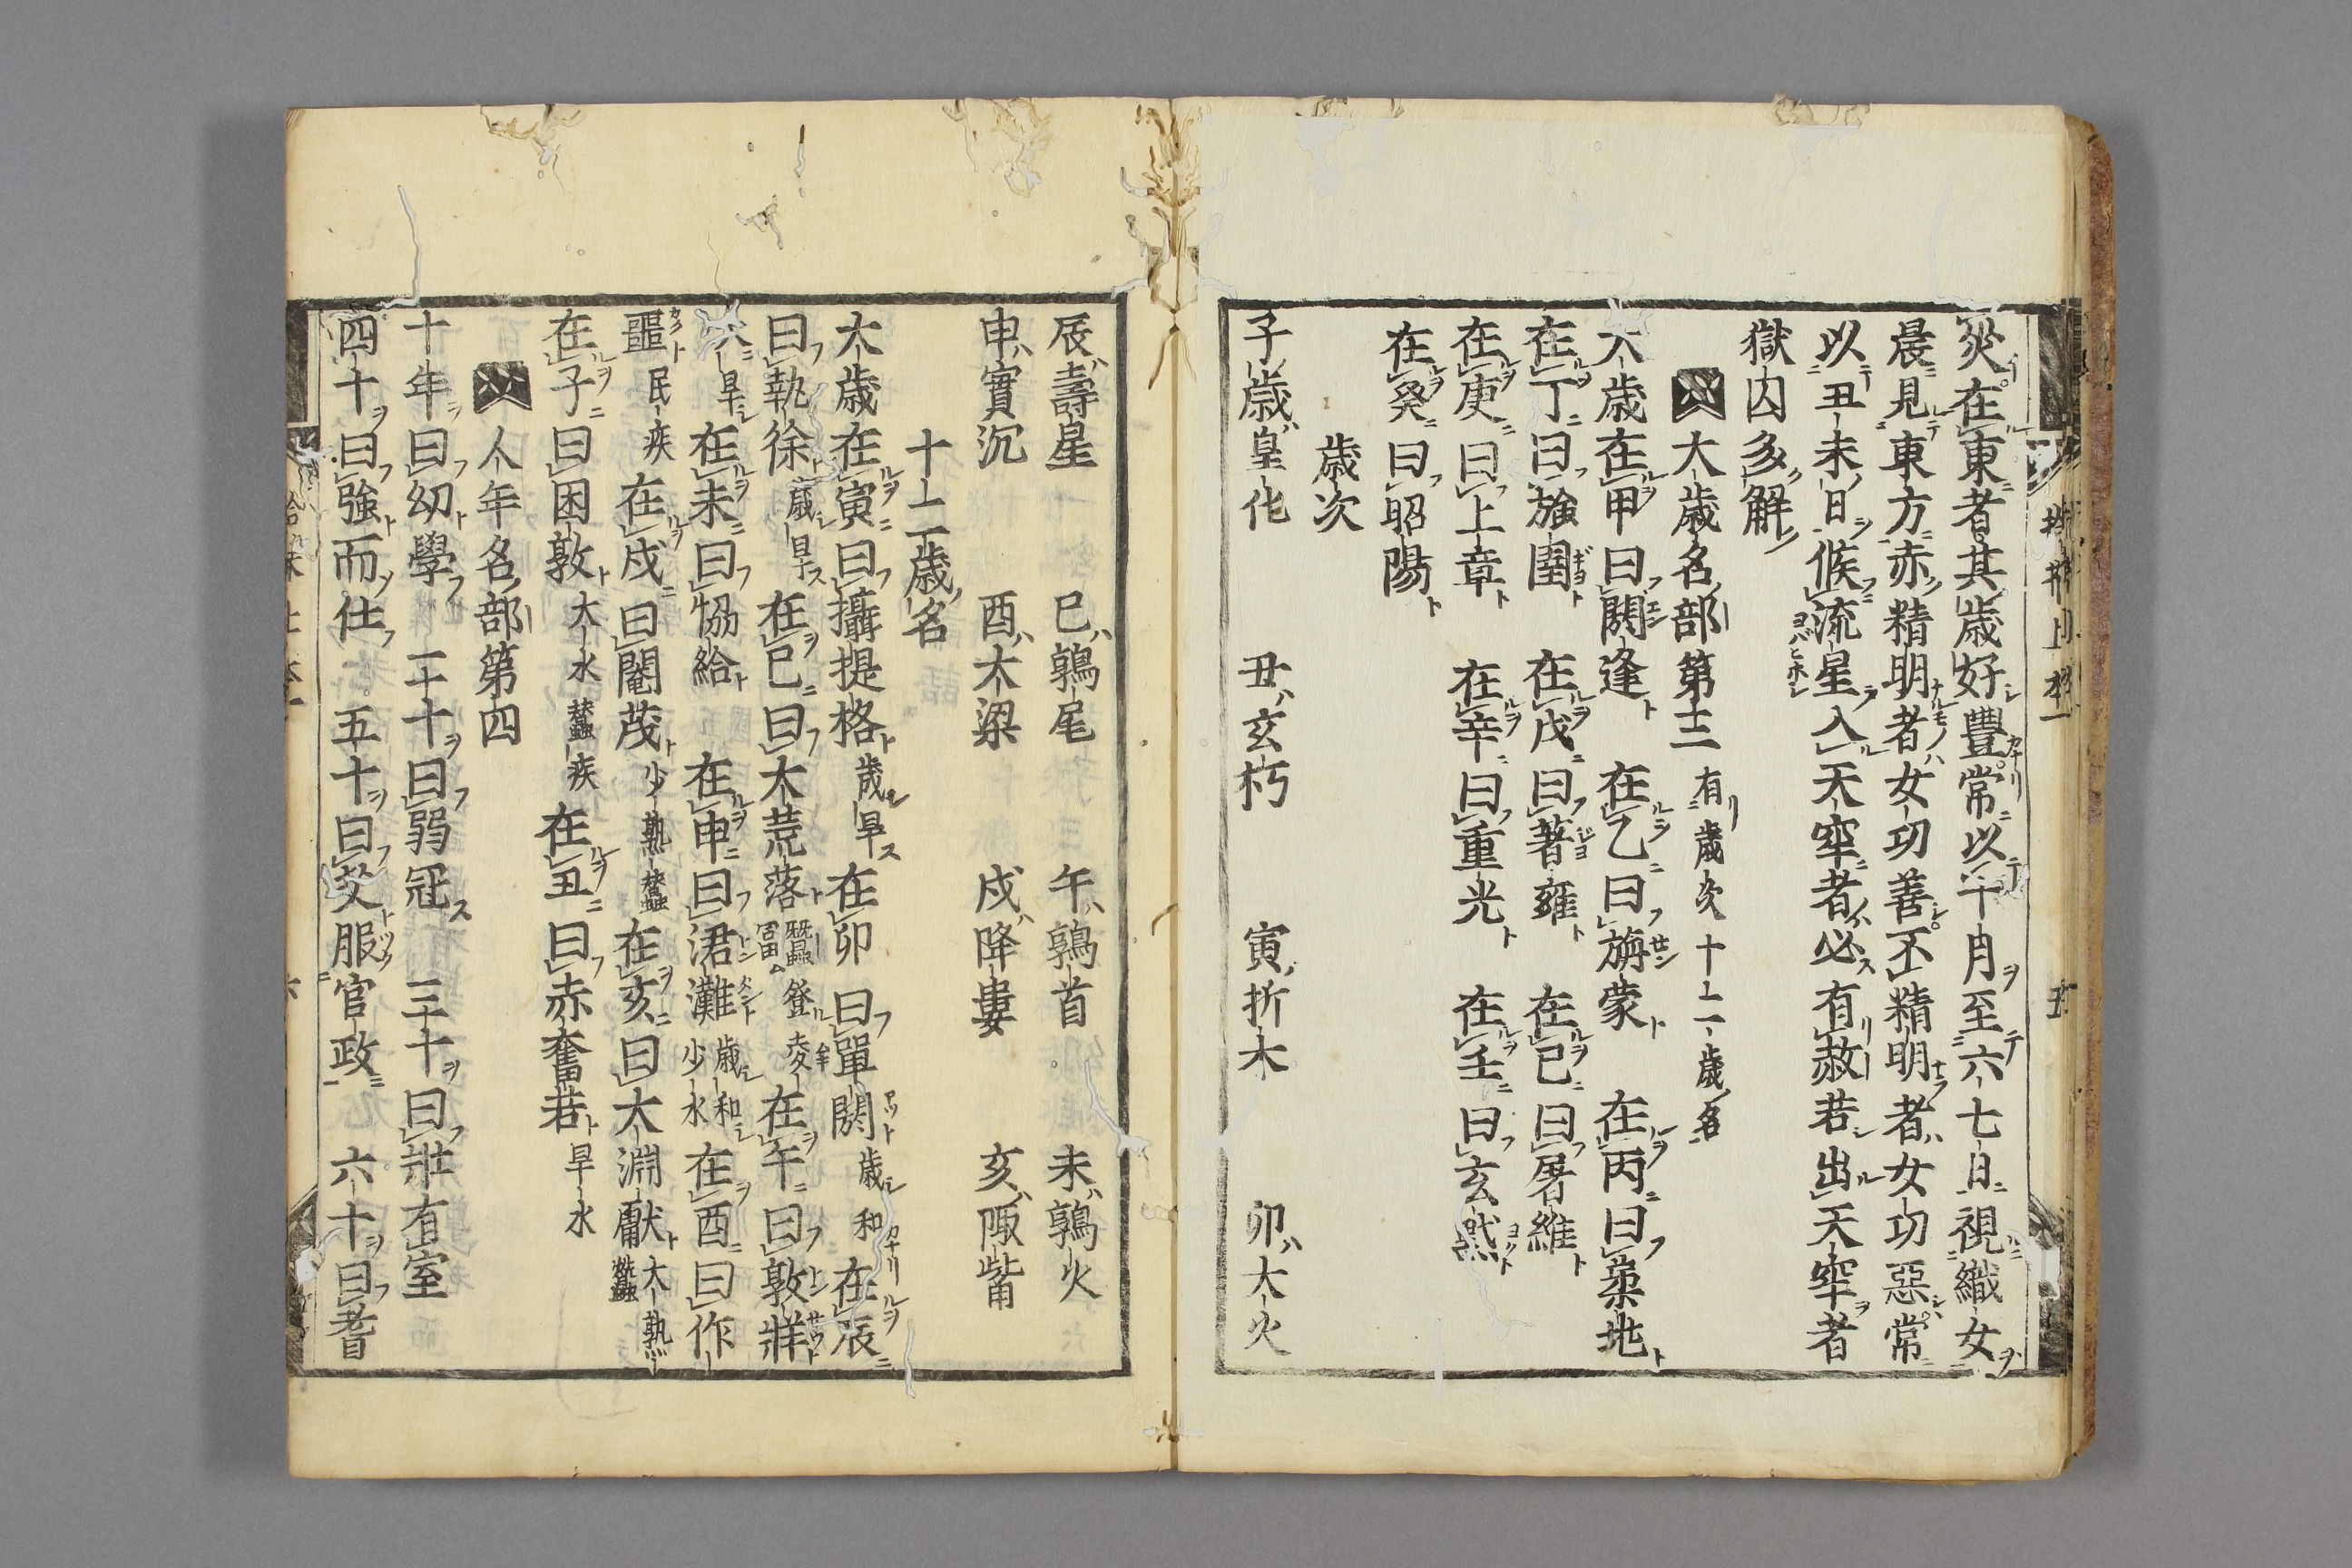 災在東者其歳好豊常以午月至六七日視織女
晨見東方赤精明者女功善不精明者女功惡常
以丑未日候流星入天牢者必有赦若出天牢者
獄囚多解
大歳名部第三 有歳次十二歳名
大歳在甲曰閼逢 在乙曰旃蒙 在丙曰柔兆
在丁曰強圉 在戊曰著雍 在己曰屠維
在庚曰上章 在辛曰重光 在壬曰玄黓
在癸曰昭陽
歳次
子歳皇化 丑玄枵 寅折木 卯大火
辰壽星 巳鶉尾 午鶉首 未鶉火
申實沉 酉太梁 戌降婁 亥陬觜
十二歳名
太歳在寅曰攝提格 歳旱 在卯曰單閼 歳和 在辰
曰執徐 歳旱 在巳曰太荒落 登麥 在午曰敦牂
旱 在未曰協給 在申曰涒灘 歳和少水 在酉曰作
噩 民疾 在戌曰閹茂 少熟蠶 在亥曰太淵獻 大熟蠶
在子曰困敦 大水蠶疾 在丑曰赤奮若 旱水
人年名部第四
十年曰幼學 二十曰弱冠 三十曰壯有室
四十曰強而仕 五十曰艾服官政 六十曰耆